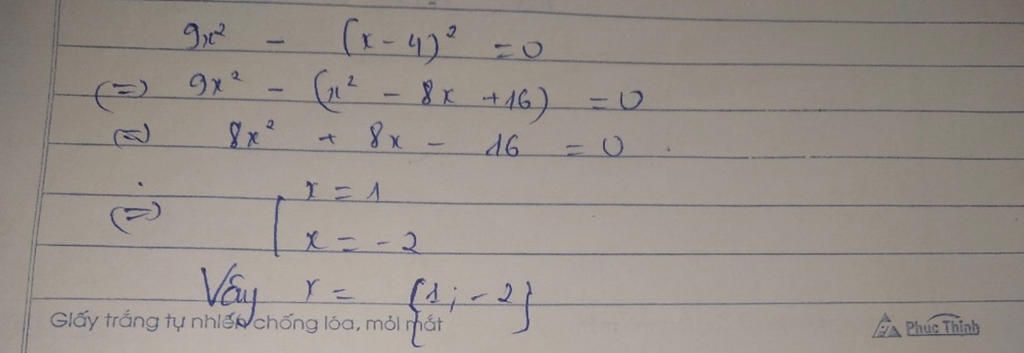 9x² - (x - 4)² = 0
(=) 9x² - (x² - 8x + 16) = 0
(=) 8x² + 8x - 16 = 0
(=) [ x = 1
x = -2
Vậy x = {1; -2}
Giấy trắng tự nhiên chống lóa, mỏi mắt
Phúc Thịnh